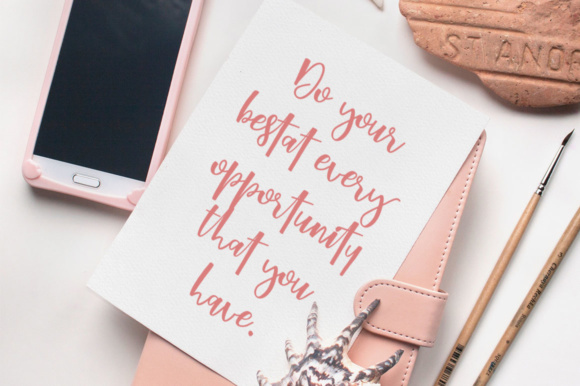 Do your
bestat every
opportunity
that you
have.
ST. ANDR